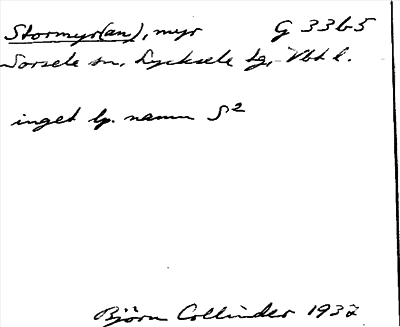 Stormyr(an), myr G 33b5
Sorsele sn, Lycksele tg, Vbt l.
inget lp. namn S²
Björn Collinder 1932